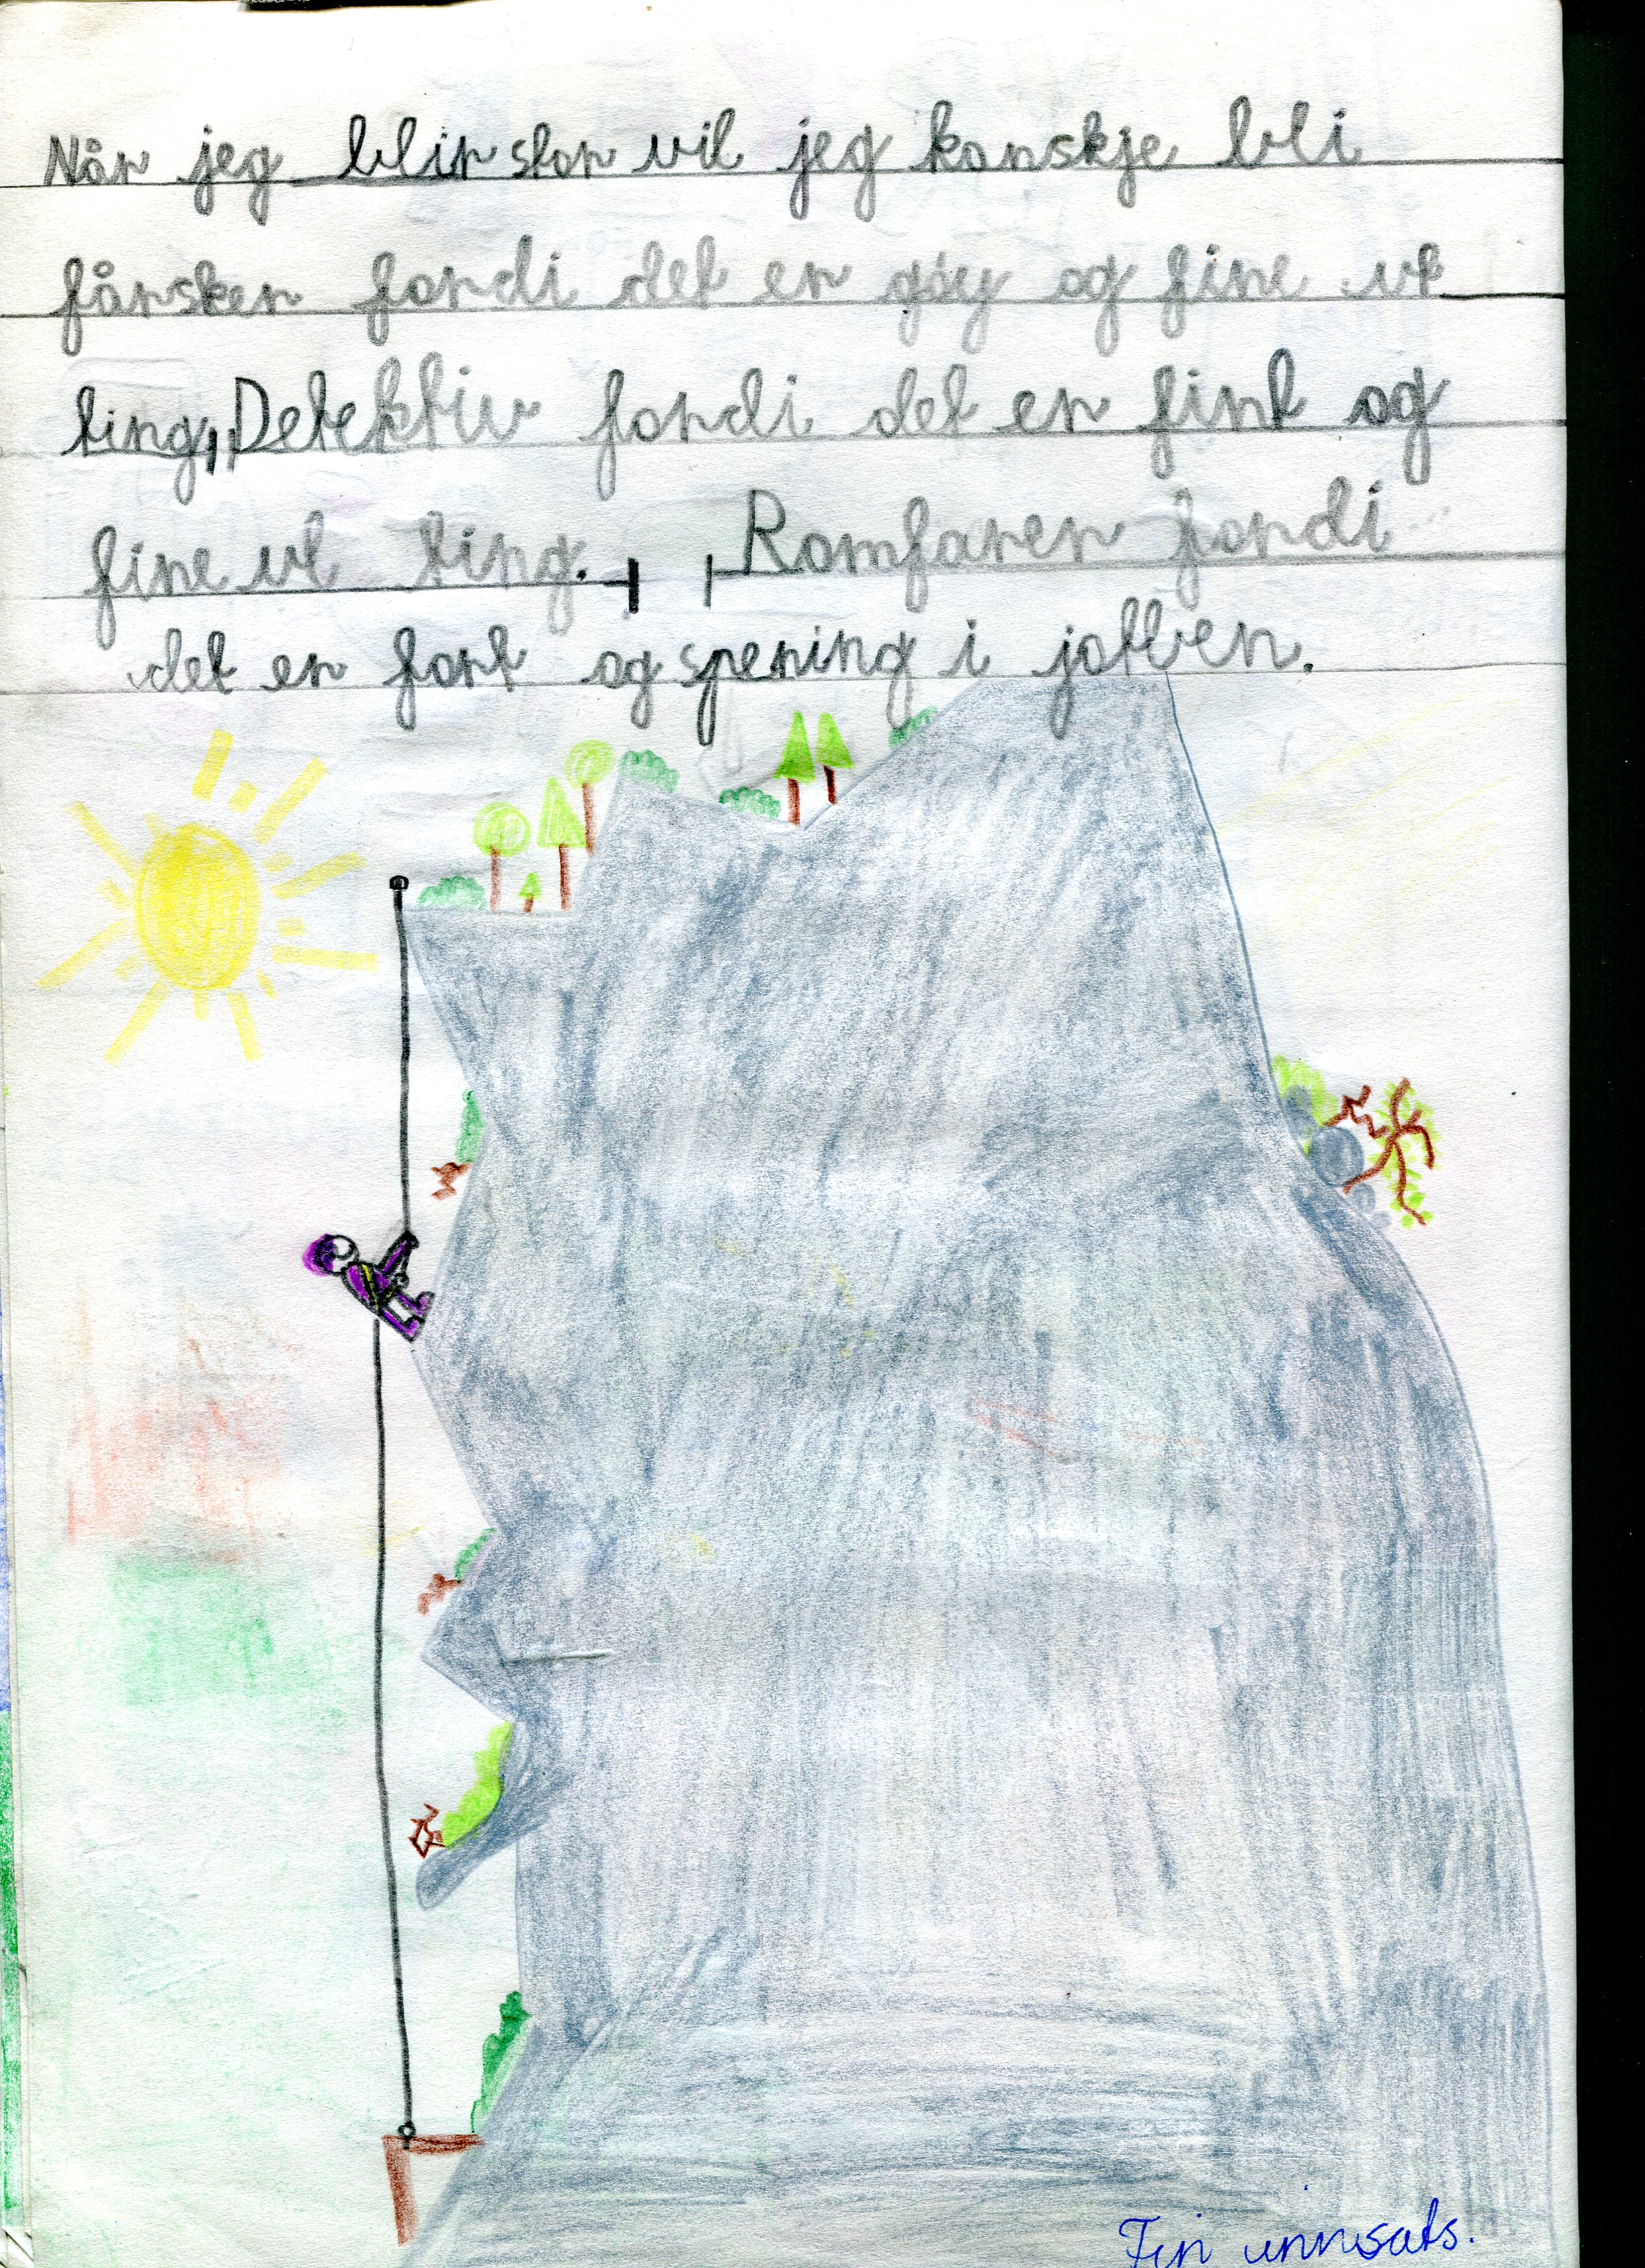 Når jeg blir stor vil jeg kanskje bli
fårsker fordi det er gøy og fine ut
ting, Detektiv fordi det er fint og
fine ut ting. Romfarer fordi
det er fart og spening i jobben.
Fin innsats.